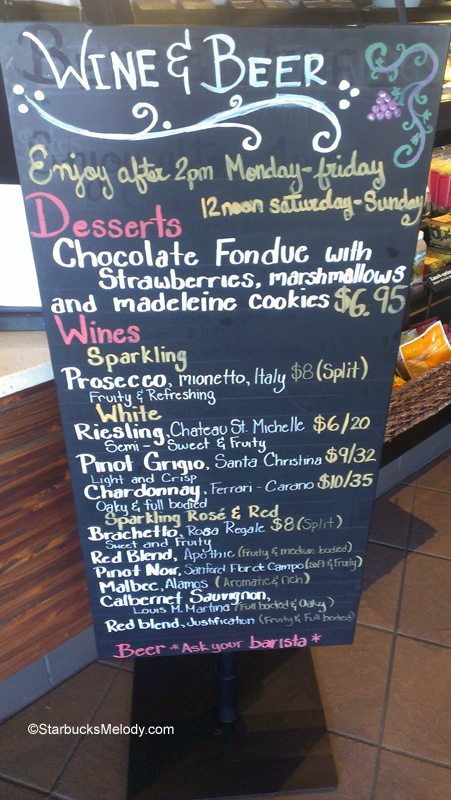 WINE & BEER
Enjoy after 2pm Monday-friday
12 noon saturday-Sunday
Desserts
Chocolate Fondue with
Strawberries, marshmallows
and madeleine cookies $6.95
Wines
Sparkling
Prosecco, mionetto, Italy $8 (Split)
Fruity & Refreshing
White
Riesling, Chateau St. Michelle $6/20
Semi-Sweet & Fruity
Pinot Grigio, Santa Christina $9/32
Light and Crisp
Chardonnay, Ferrari-Carano $10/35
Oaky & full bodied
Sparkling Rosé & Red
Brachetto, Rosa Regale $8 (Split)
Sweet and Fruity
Red Blend, Apothic (Fruity & medium bodied)
Pinot Noir, Sanford Flor de Campo (soft & Fruity)
Malbec, Alamos (Aromatic & rich)
Calbernet Sauvignon,
Louis M. Martina (Full bodied & Oaky)
Red blend, Justification (Fruity & Full bodied)
Beer *Ask your barista*
©StarbucksMelody.com